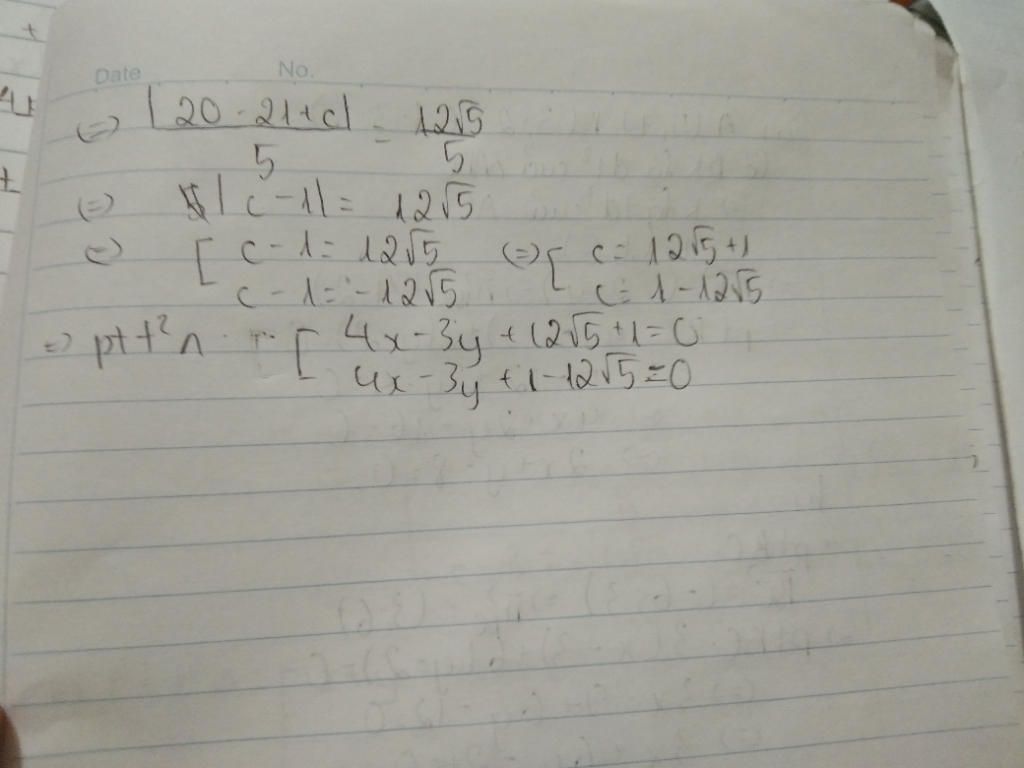 Date No.
(=) |20 - 21+c| / 5 = 12√5 / 5
(=) |c - 1| = 12√5
(=) [ c - 1 = 12√5 (=) [ c = 12√5 + 1
c - 1 = -12√5 c = 1 - 12√5
=) pt t² n [ 4x - 3y + 12√5 + 1 = 0
4x - 3y + 1 - 12√5 = 0